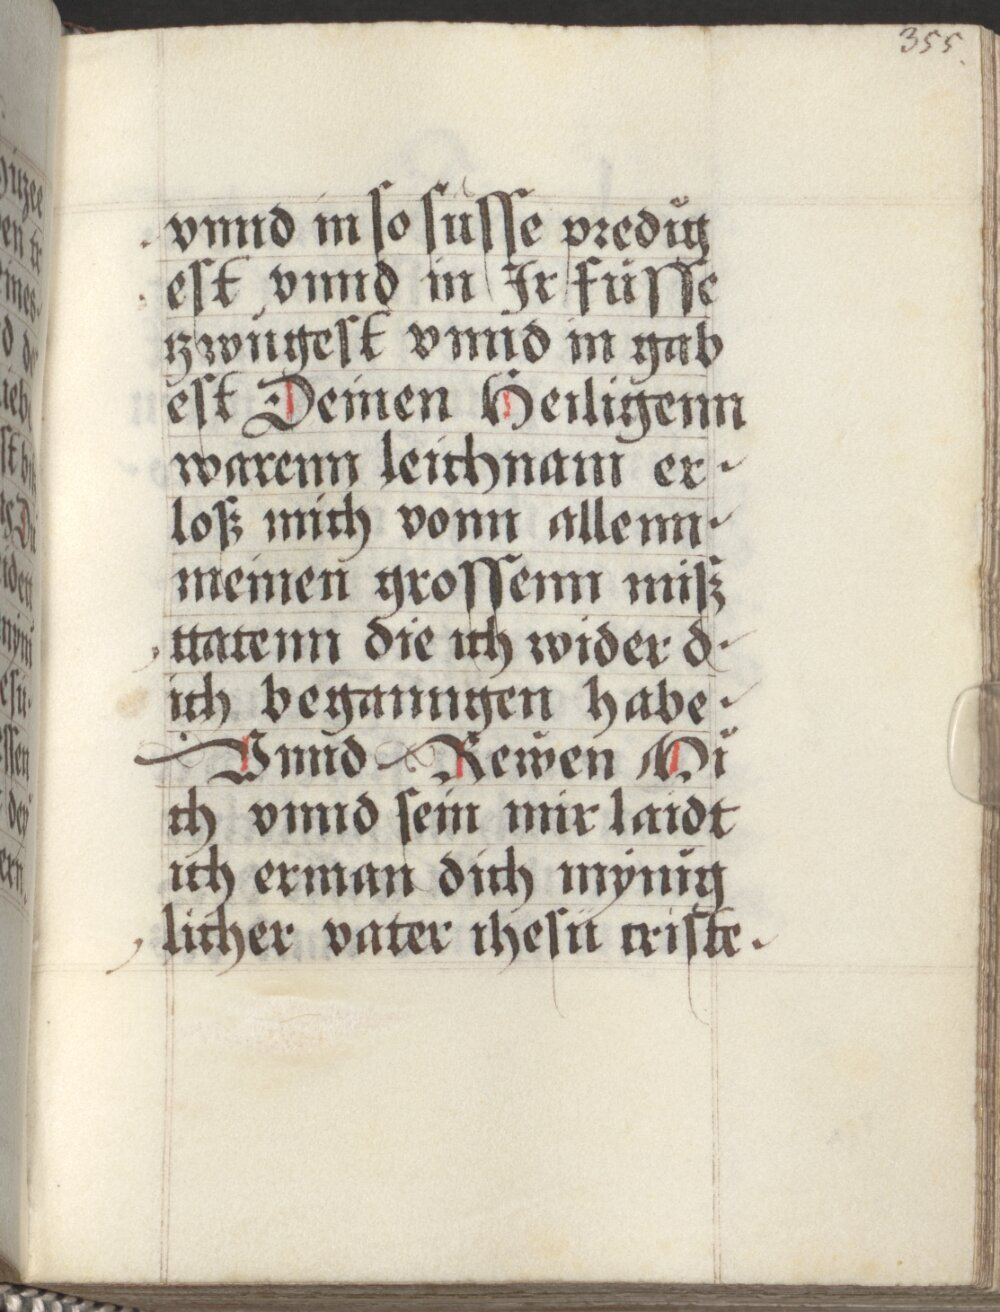 355.
vnnd in so süsse predig
est vnnd in Ir füsse
zwůgest vnnd in gab
est Deinen Heiligenn
warenn leichnam er
losz mich vonn allenn
meinen grossenn misz
ttatenn die ich wider d
ich beganngen habe
Vnnd Rewen Mi
ch vnnd sein mir laidt
ich erman dich mynig
licher vater ihesu criste.